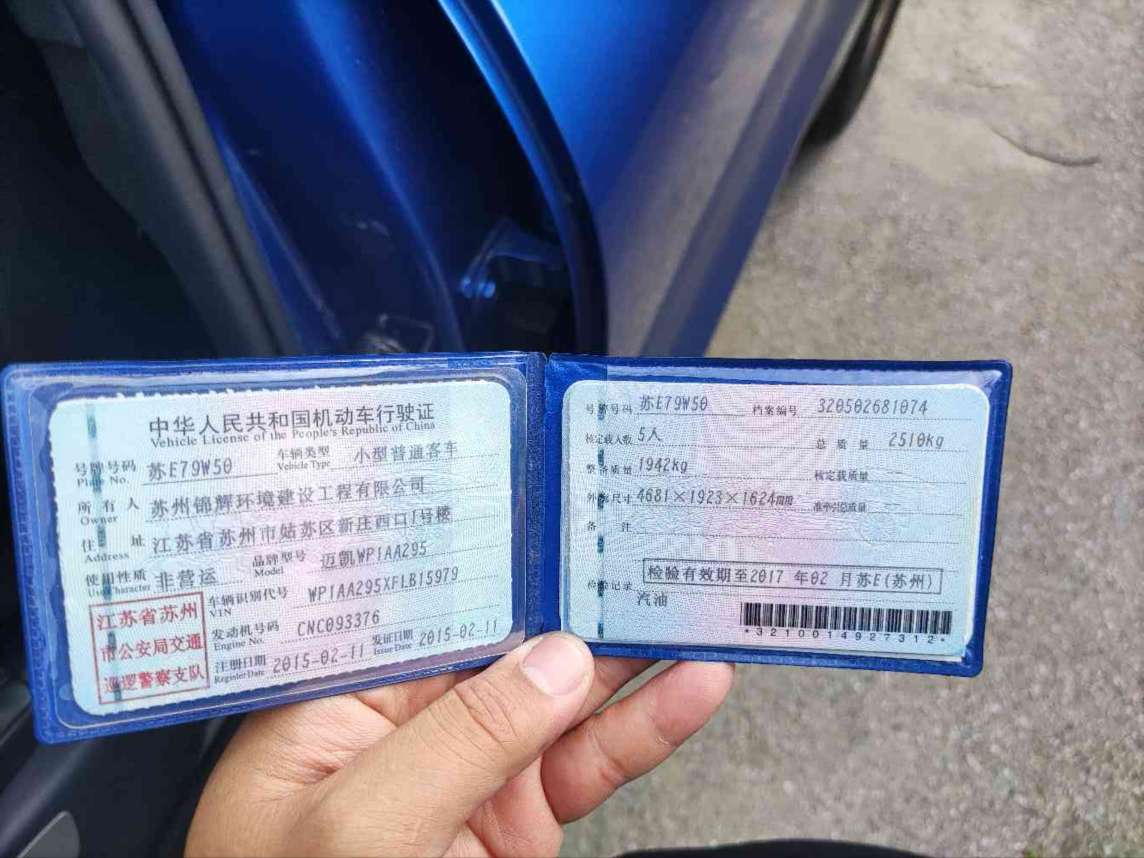 中华人民共和国机动车行驶证
Vehicle License of the People's Republic of China
号牌号码 Plate No. 苏E79W50 车辆类型 Vehicle Type 小型普通客车
所有人 Owner 苏州锦辉环境建设工程有限公司
住址 Address 江苏省苏州市姑苏区新庄西口1号楼
使用性质 Use Character 非营运 品牌型号 Model 迈凯WP1AA295
江苏省苏州
市公安局交通
巡逻警察支队
车辆识别代号 VIN WP1AA295XFLB15979
发动机号码 Engine No. CNC093376
注册日期 Register Date 2015-02-11 发证日期 Issue Date 2015-02-11
号牌号码 苏E79W50 档案编号 320502681074
核定载人数 5人 总质量 2510kg
整备质量 1942kg 核定载质量 --
外廓尺寸 4681×1923×1624mm 准牵引总质量 --
备注
检验记录 检验有效期至2017年02月苏E(苏州)
汽油
*3210014927312*